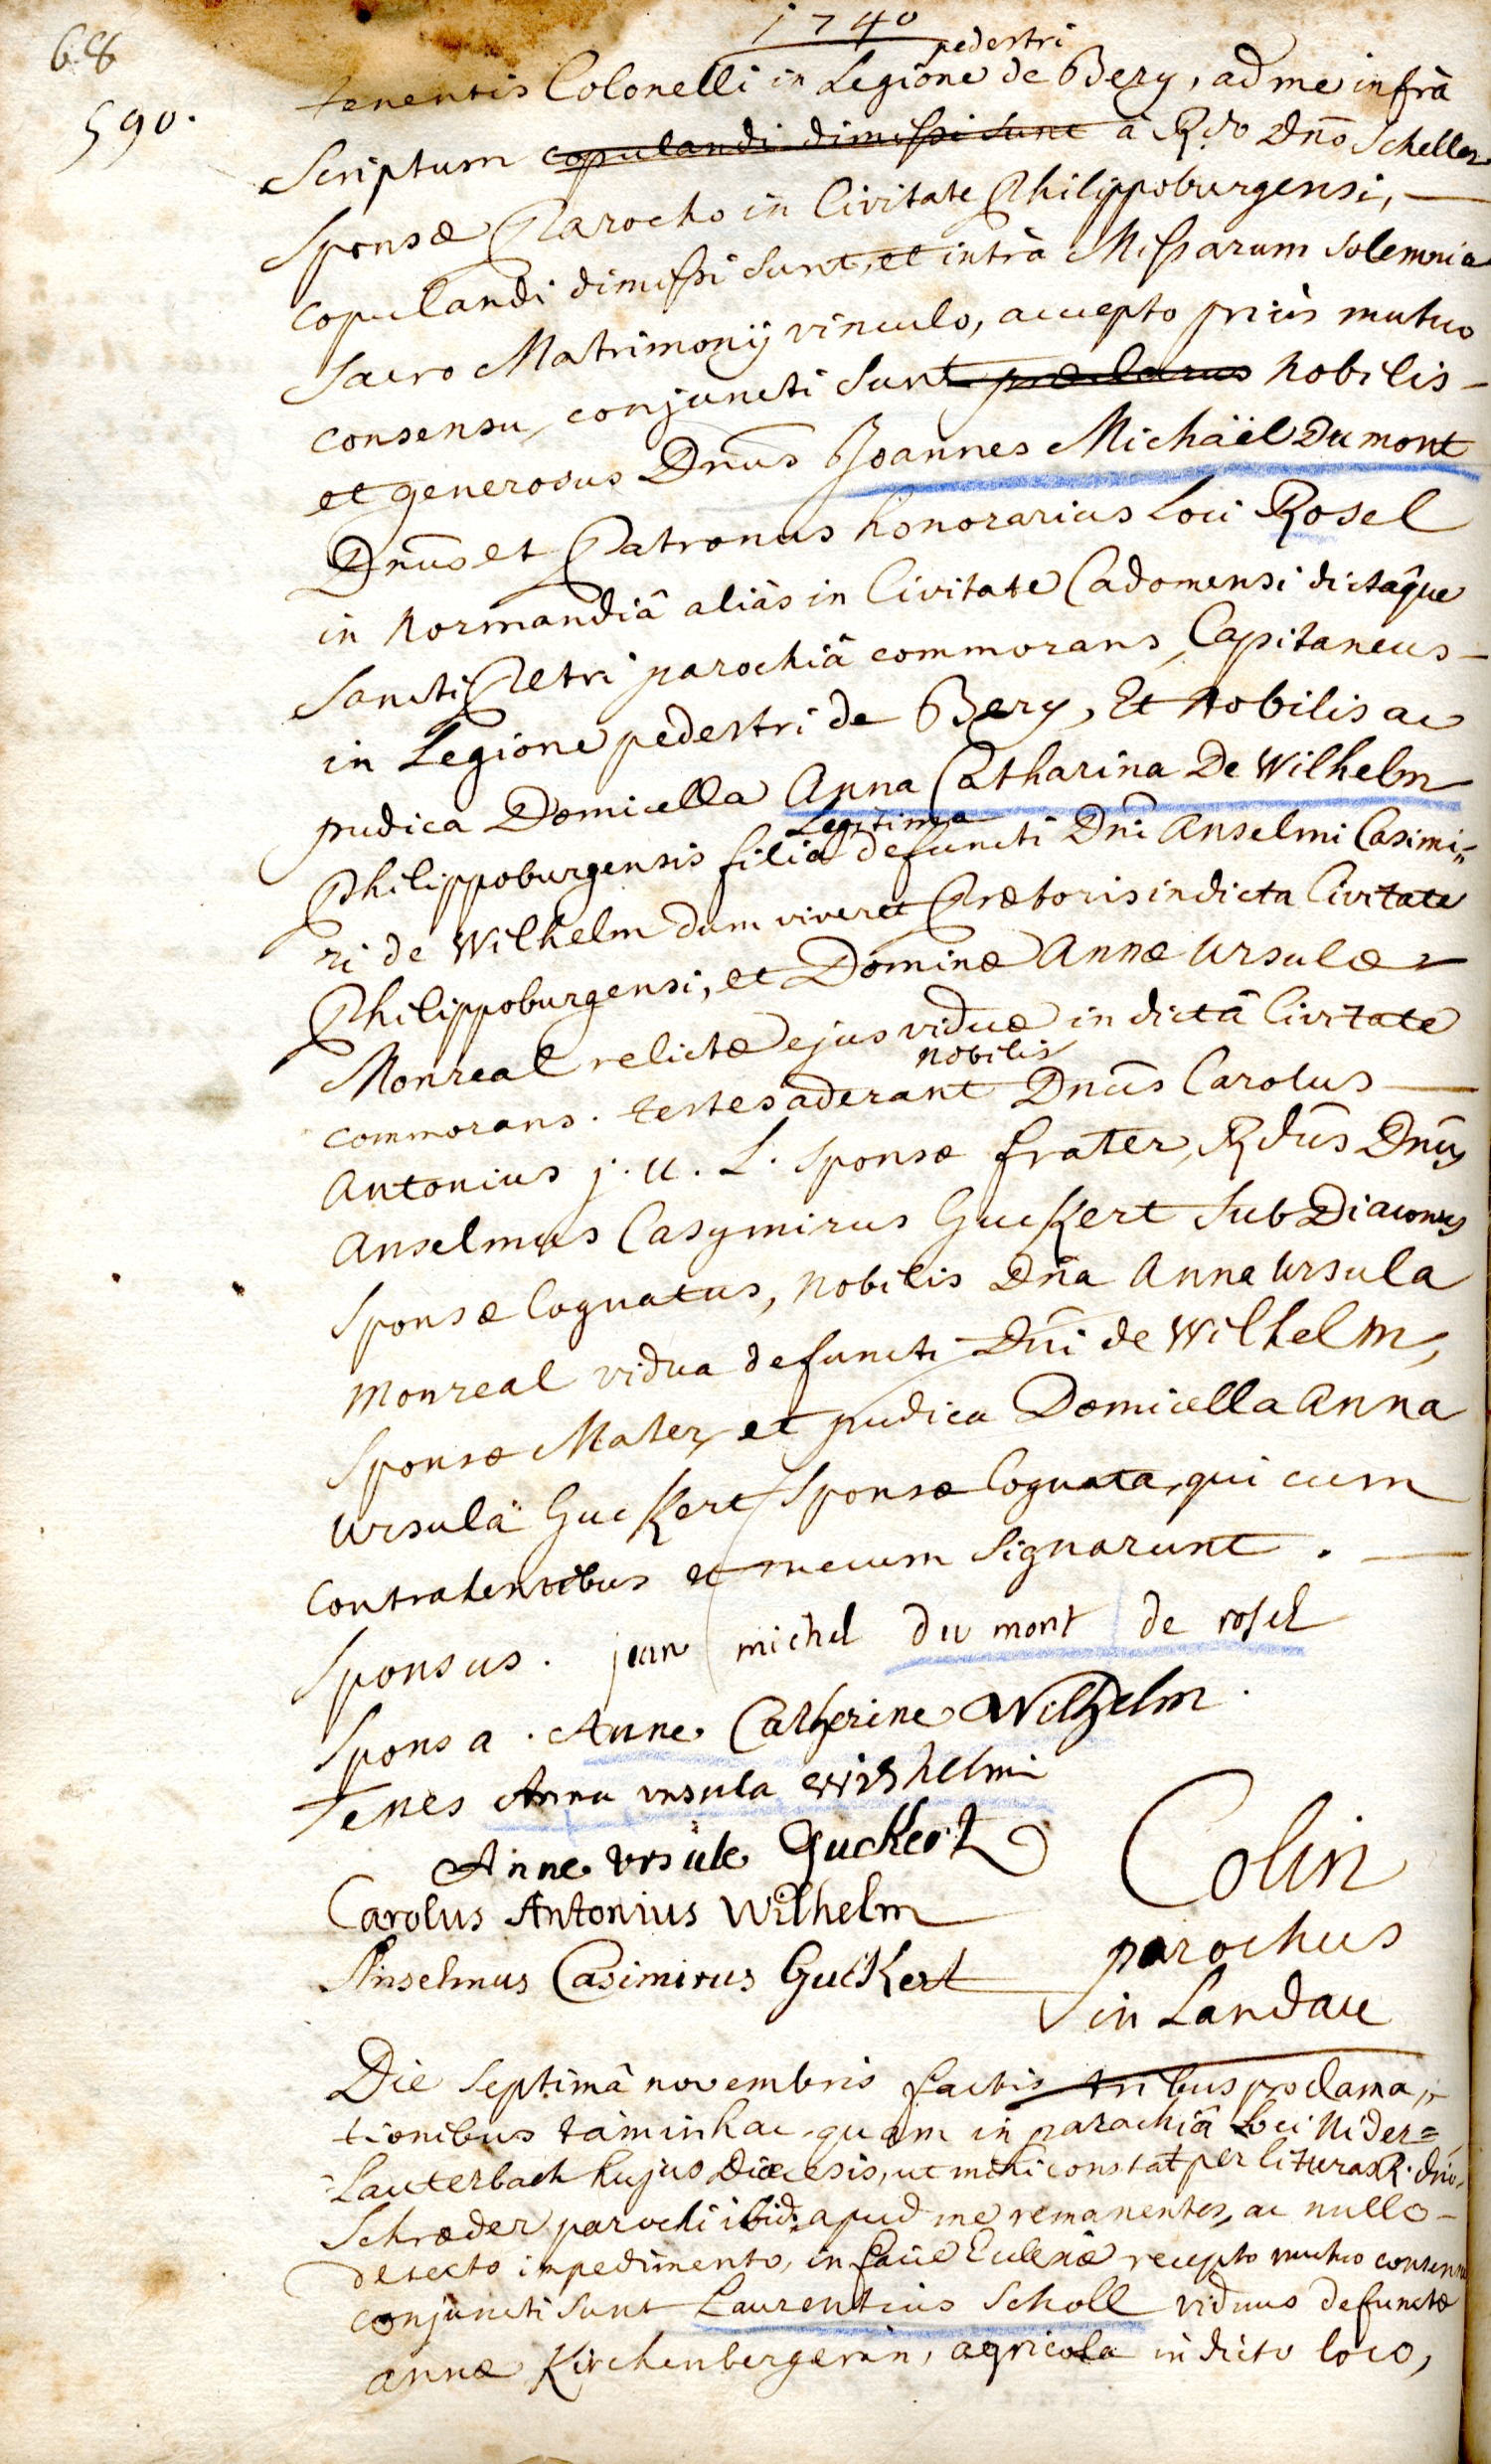 1740
68
590.
pedestri
tenentis Colonelli in Legione de Bery, ad me infrà
Scriptum copulandi dimissi sunt à Rdo Dno Scheller
Sponsæ Parocho in Civitate Philippoburgensi, —
copulandi dimissi sunt, et intrà Missarum solemnia
sacro Matrimonij vinculo, accepto priùs mutuo
consensu, conjuncti sunt præclarus nobilis –
et generosus Dnus Joannes Michäel Dumont
Dnus et Patronus honorarius Loci Rosel
in Normandiâ aliàs in Civitate Cadomensi dictâque
Sancti Petri parochiâ commorans, Capitaneus –
in Legione pedestri de Bery, Et Nobilis ac
pudica Domicella Anna Catharina De Wilhelm
Legitima
Philippoburgensis filia defuncti Dni Anselmi Casimi=
ri de Wilhelm dum viveret Prætoris in dicta Civitate
Philippoburgensi, et Dominæ Annæ Ursulæ –
Monreal relictæ ejus viduæ in dictâ Civitate
nobilis
commorans. testes aderant Dnus Carolus —
Antonius j. u. L. sponsæ frater, Rdus Dnus
Anselmus Casymirus Guckert SubDiaconus
Sponsæ Cognatus, nobilis Dna Anna Ursula
Monreal vidua defuncti Dni de Wilhelm,
Sponsæ Mater, et pudica Domicella Anna
Ursula Guckert Sponsæ Cognata, qui cum
Contrahentibus et mecum signarunt. —
Sponsus. jean michel du mont de rosel
Sponsa. Anne Catherine Wilhelm.
Testes Anna ursula wilhelmi
Anne ursule Guckert
Carolus Antonius Wilhelm
Anselmus Casimirus Guckert
Colin
parochus
in Landau
Die septimâ novembris factis tribus proclama=
tionibus tàm in hac quam in parochiâ Loci Nider=
Lauterbach hujus Diœcesis, ut mihi constat per lituras R. dni
Schræder parochi ibid. apud me remanentes, ac nullo –
detecto impedimento, in facie Ecclesiæ recepto mutuo consensu
conjuncti sunt Laurentius Scholl viduus defunctæ
annæ Kirchenbergerin, agricola in dicto loco,